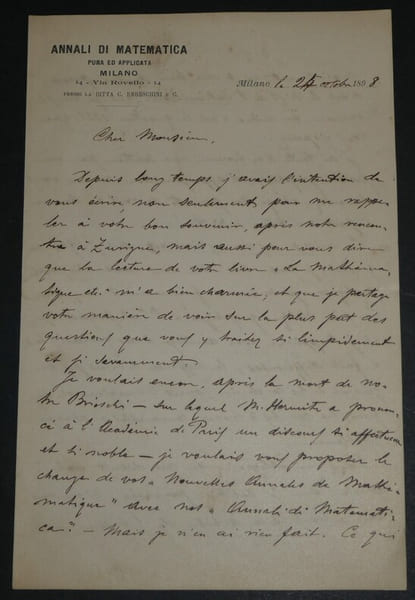 ANNALI DI MATEMATICA
PURA ED APPLICATA
MILANO
14 - Via Rovello - 14
PRESSO LA DITTA C. REBESCHINI E C.
Milano, le 24 octobre 1898
Cher Monsieur,
Depuis long temps j'avais l'intention de
vous écrire, non seulement pour me rappe-
ler à votre bon souvenir, après notre rencon-
tre à Zurigue, mais aussi pour vous dire
que la lecture de votre livre "La Mathéma-
tique etc." m'a bien charmée, et que je partage
votre manière de voir sur la plus part des
questions que vous y traitez si limpidement
et si savamment.
Je voulais encore, après la mort de no-
tre Brioschi — sur lequel M. Hermite a pronon-
cé à l'Académie de Paris un discours si affectueux
et si noble — je voulais vous proposer le
change de vos "Nouvelles Annales de Mathé-
matique" avec nos "Annali di Matemati-
ca". Mais je n'en ai rien fait. Ce qui